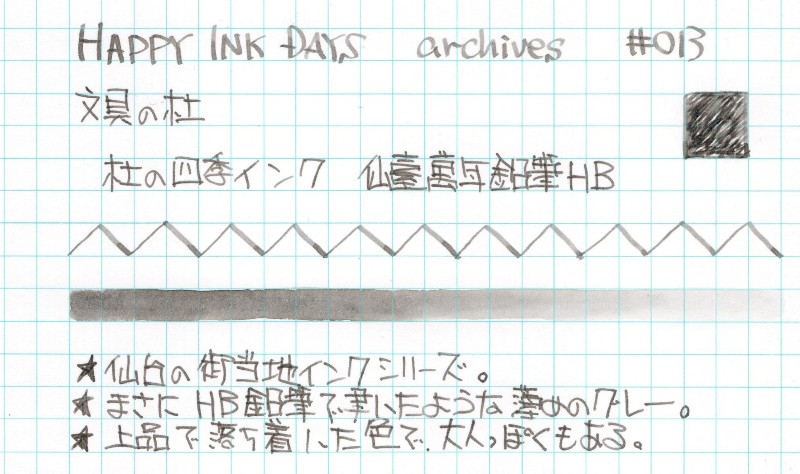 HAPPY INK DAYS archives #013
文具の杜
杜の四季インク 仙臺萬年鉛筆HB
★仙台の御当地インクシリーズ。
★まさにHB鉛筆で筆いたような薄めのグレー。
★上品で落ち着いた色で、大人っぽくもある。